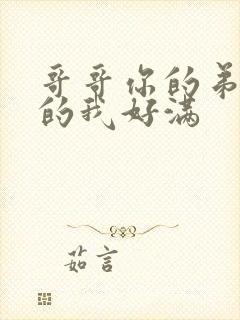 哥哥你的弟
的我好满
茹言